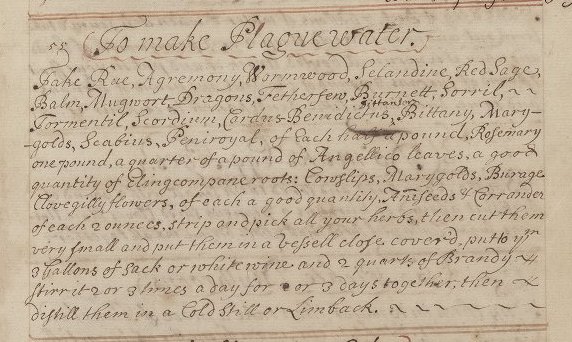 55 To make Plague water.
Take Rue, Agremony, Wormwood, Selandine, Red Sage,
Balm, Mugwort, Dragons, Fetherfew, Burnett, Sorril,
Tormentil, Scordium, Cardus-Benidictus, Bittany, Mary-
golds, Scabius, Peniroyal, of each half a pound, Rosemary
one pound, a quarter of a pound of Angellico leaves, a good
quantity of Elingcompane roots: Cowslips, Marygolds, Burage
Clovegillyflowers, of each a good quantity, Aniseeds & Corrander
of each 2 ounces, strip and pick all your herbs, then cut them
very small and put them in a vessell close cover'd, put to ym
3 Gallons of Sack or white wine and 2 quarts of Brandy
Stirr it 2 or 3 times a day for or 3 days together, then
distill them in a Cold Still or Limback.